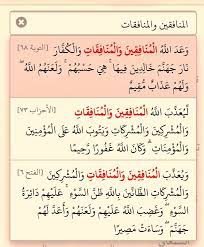 المنافقين والمنافقات
وَعَدَ اللَّهُ الْمُنَافِقِينَ وَالْمُنَافِقَاتِ وَالْكُفَّارَ [التوبة ٦٨]
نَارَ جَهَنَّمَ خَالِدِينَ فِيهَا ۚ هِيَ حَسْبُهُمْ ۚ وَلَعَنَهُمُ اللَّهُ ۖ
وَلَهُمْ عَذَابٌ مُّقِيمٌ
لِّيُعَذِّبَ اللَّهُ الْمُنَافِقِينَ وَالْمُنَافِقَاتِ [الأحزاب ٧٣]
وَالْمُشْرِكِينَ وَالْمُشْرِكَاتِ وَيَتُوبَ اللَّهُ عَلَى الْمُؤْمِنِينَ
وَالْمُؤْمِنَاتِ ۗ وَكَانَ اللَّهُ غَفُورًا رَّحِيمًا
وَيُعَذِّبَ الْمُنَافِقِينَ وَالْمُنَافِقَاتِ [الفتح ٦]
وَالْمُشْرِكِينَ وَالْمُشْرِكَاتِ الظَّانِّينَ بِاللَّهِ ظَنَّ السَّوْءِ ۚ عَلَيْهِمْ دَائِرَةُ
السَّوْءِ ۖ وَغَضِبَ اللَّهُ عَلَيْهِمْ وَلَعَنَهُمْ وَأَعَدَّ لَهُمْ
جَهَنَّمَ ۖ وَسَاءَتْ مَصِيرًا